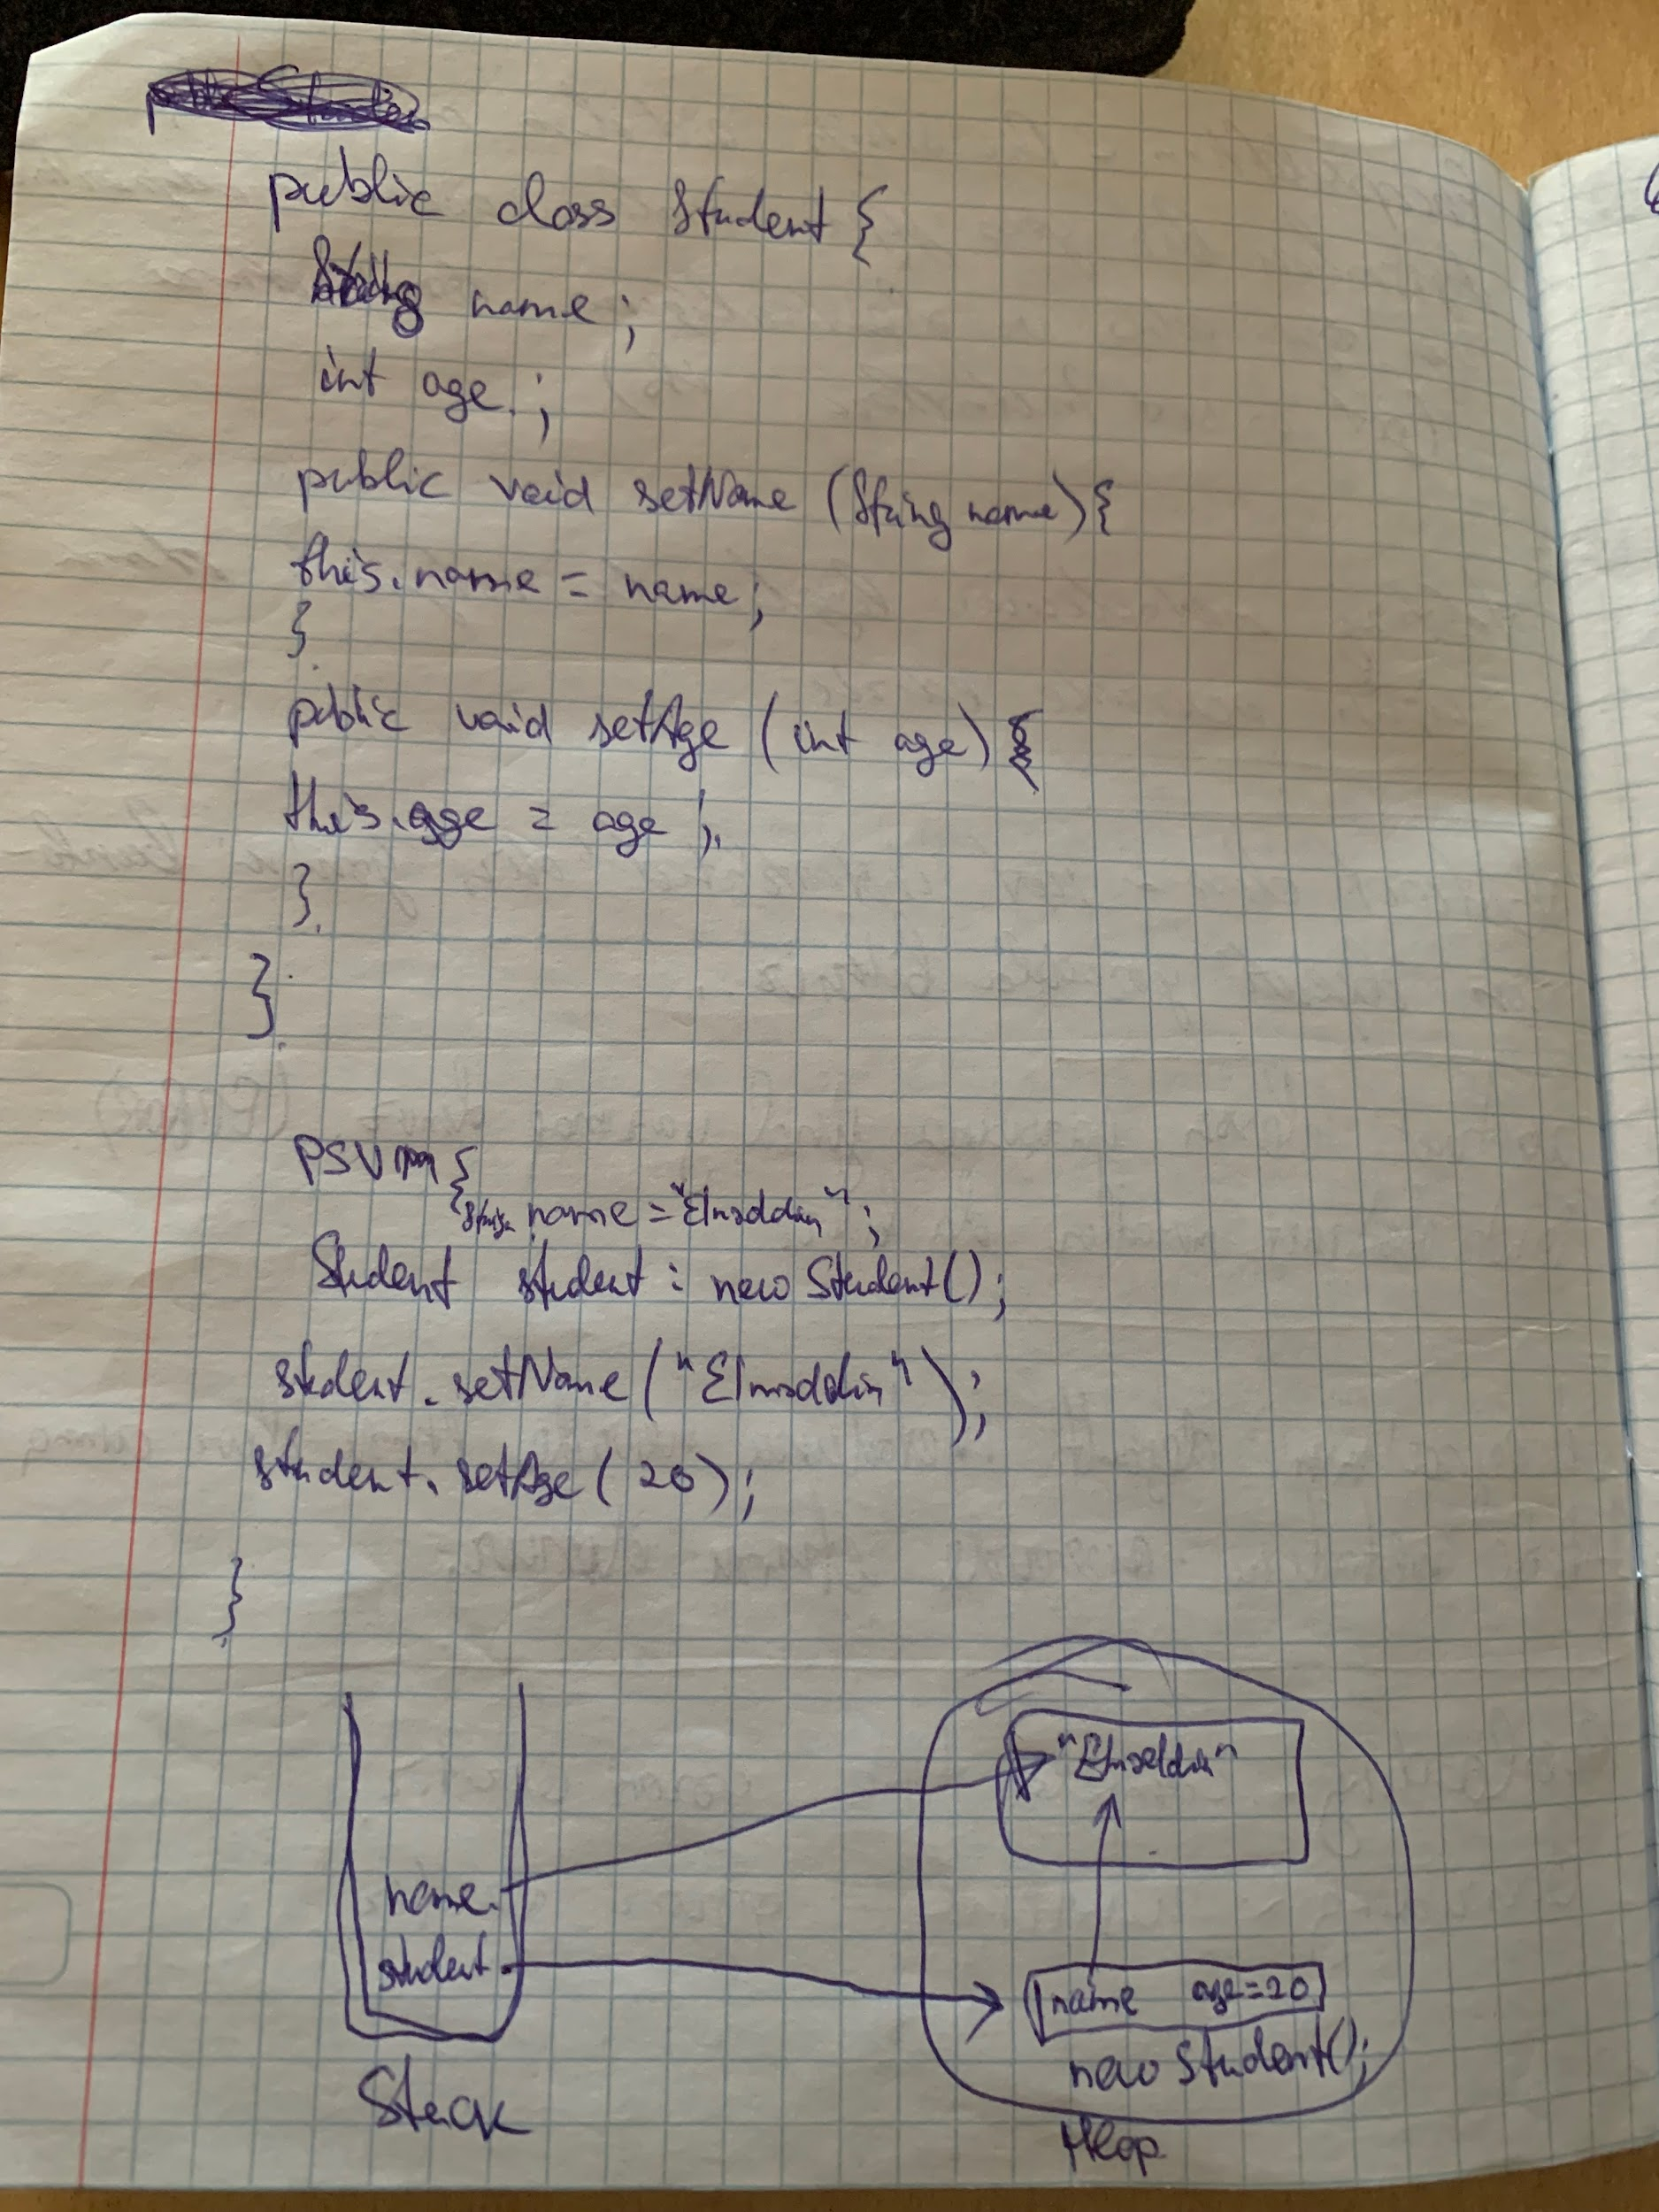 public class Student {
String name;
int age;
public void setName (String name) {
this.name = name;
}
public void setAge (int age) {
this.age = age;
}
}
PSVM {
String name = "Elnaddin";
Student student = new Student();
student.setName("Elnaddin");
student.setAge(20);
}
"Elnaddin"
name
student
name age=20
new Student();
Stack
Heap